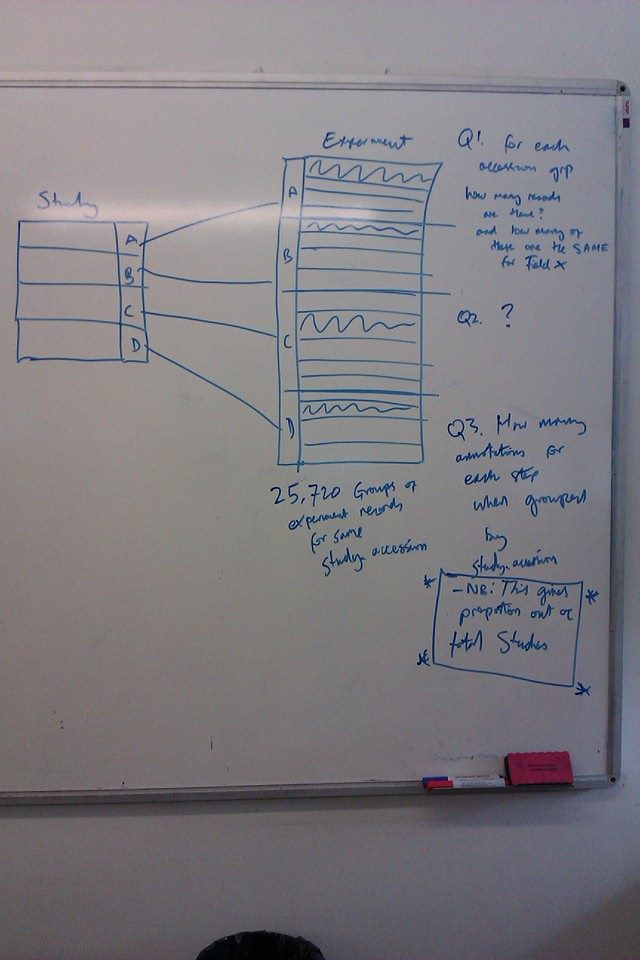 Study
A
B
C
D
Experiment
A
B
C
D
25,720 Groups of
experiment records
for same
study accession
Q1. for each
accession grp
how many records
are there?
and how many of
these are the SAME
for Field X
Q2. ?
Q3. How many
annotations for
each step
when grouped
by
study accession
- NB: This gives
proportion out of
total Studies